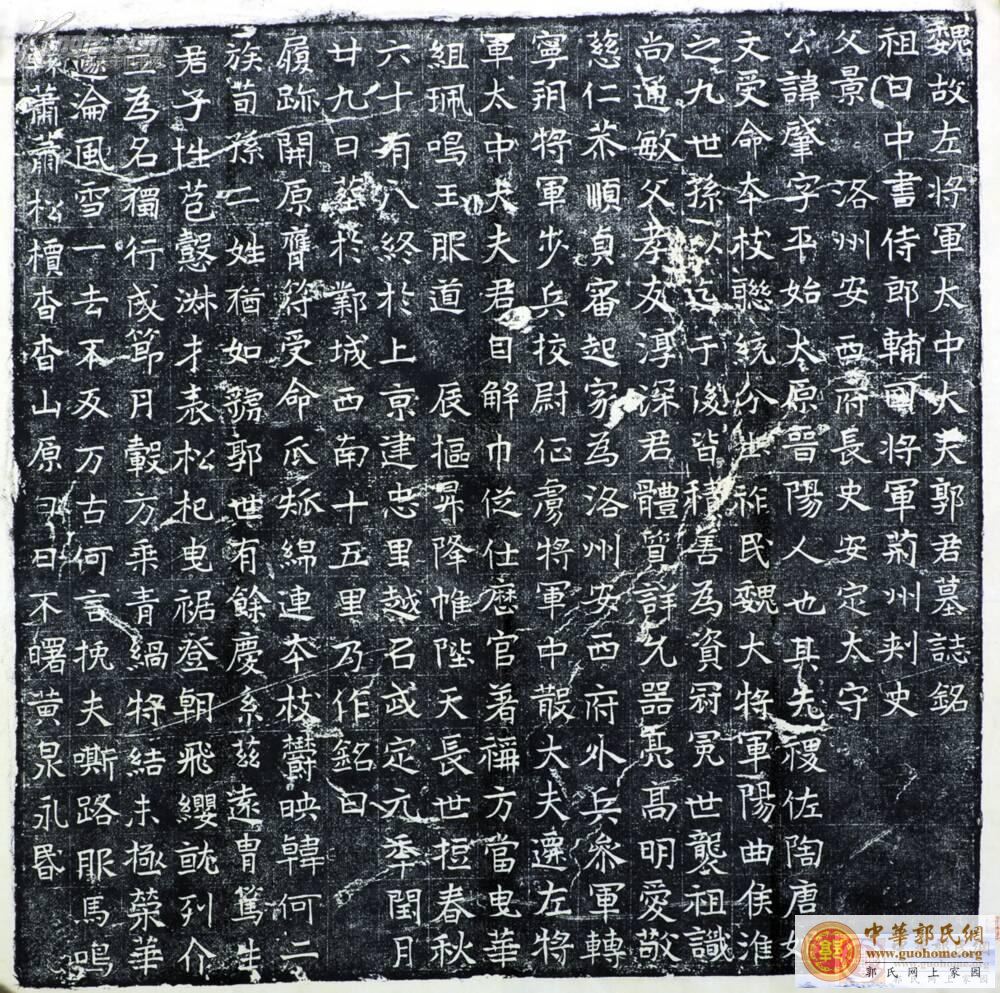 魏故左將軍太中大夫郭君墓誌銘
祖曰中書侍郎輔國將軍荊州刺史
父景 洛州安西府長史安定太守
公諱肇字平始太原晉陽人也其先稷佐陶唐
文受命本枝聯統分出祚民魏大將軍陽曲侯淮
之九世孫以迄于後皆積善為資冠冕世襲祖識
尚通敏父孝友淳深君體質詳允器亮高明愛敬
慈仁恭順貞審起家為洛州安西府外兵參軍轉
寧朔將軍步兵校尉征虜將軍中散大夫遷左將
軍太中大夫君自解巾從仕歷官著稱方當曳華
組珮鳴玉服道 辰樞昇降帷陛天長世短春秋
六十有八終於上京建忠里越召武定元年閏月
廿九日葬於鄴城西南十五里乃作銘曰
履跡開原膺符受命瓜瓞綿連本枝鬱映韓何二
族荀孫二姓猶如虢郭世有餘慶系茲遠胄篤生
君子性苞懿淋才表松杞曳裾登朝飛纓就列介
立為名獨行成節丹轂方乘青緺將結未極榮華
遂淪風雪一去不反万古何言挽夫嘶路服馬鳴
轅蕭蕭松檟杳杳山原白日不曙黃泉永昏
中華郭氏網
www.guohome.org
郭氏網上家園